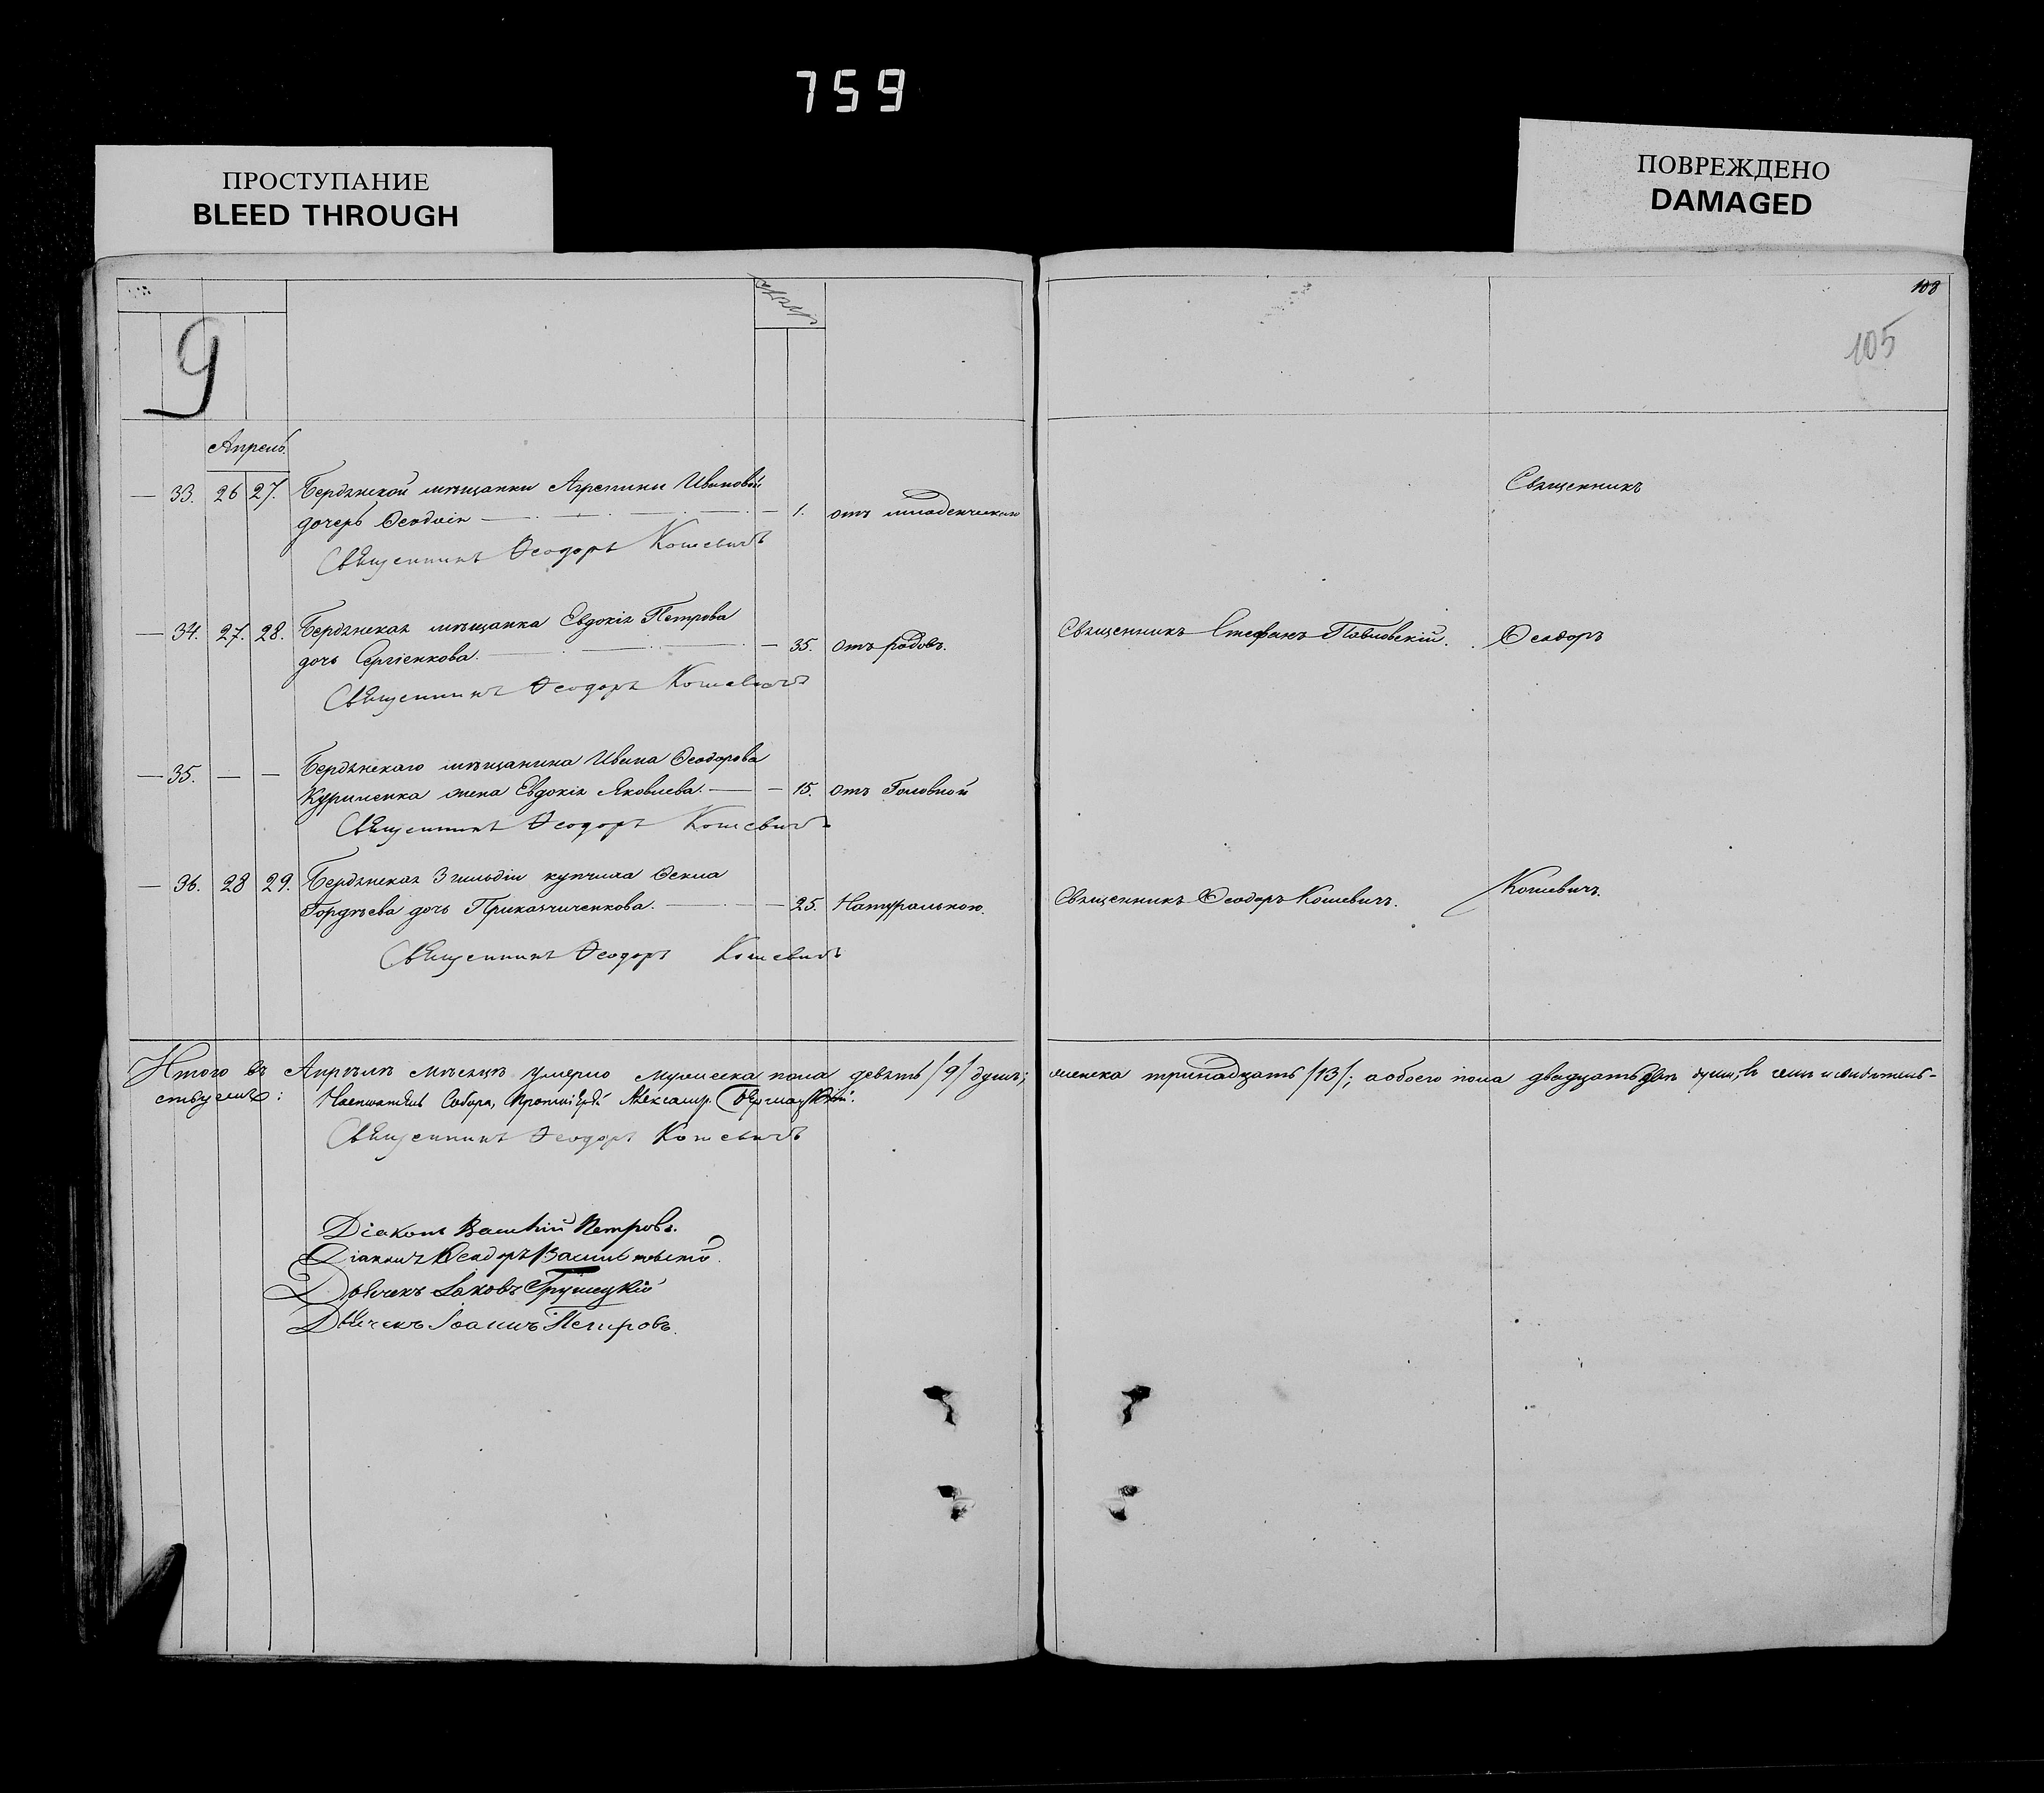 759
ПРОСТУПАНИЕ
BLEED THROUGH
ПОВРЕЖДЕНО
DAMAGED
108
105
9
Апрель.
— 33. 26 27. Бердянской мѣщанки Агрепины Ивановой
дочерь Ѳеодосія — 1. отъ младенческаго
Священникъ
Священникъ Ѳеодоръ Кошевичъ
— 34. 27. 28. Бердянская мѣщанка Евдокія Петрова
дочь Сергіенкова. — 35. Отъ родовъ. Священникъ Стефанъ Павловскій. Ѳеодоръ
Священникъ Ѳеодоръ Кошевичъ
— 35. — — Бердянскаго мѣщанина Ивана Ѳеодорова
Куриленка жена Евдокія Яковлева. — — 15. Отъ Головной
Священникъ Ѳеодоръ Кошевичъ
— 36. 28 29. Бердянская 3 гильдіи купчиха Ѳекла
Гордѣева дочь Приказчиченкова. — 25. Натуральною. Священникъ Ѳеодоръ Кошевичъ. Кошевичъ.
Священникъ Ѳеодоръ Кошевичъ
Итого въ Апрѣлѣ мѣсяцѣ умерло мужеска пола девять /9/ душъ; женска тринадцать /13/; а обоего пола двадцать двѣ души, въ чемъ и свидѣтель-
ствуемъ: Настоятель Собора, Протоіерей Александръ
Священникъ Ѳеодоръ Кошевичъ
Діаконъ Василій Петровъ.
Діаконъ Ѳеодоръ
Дьячекъ Іаковъ Грушецкій
Дьячекъ Іоаннъ Петровъ.